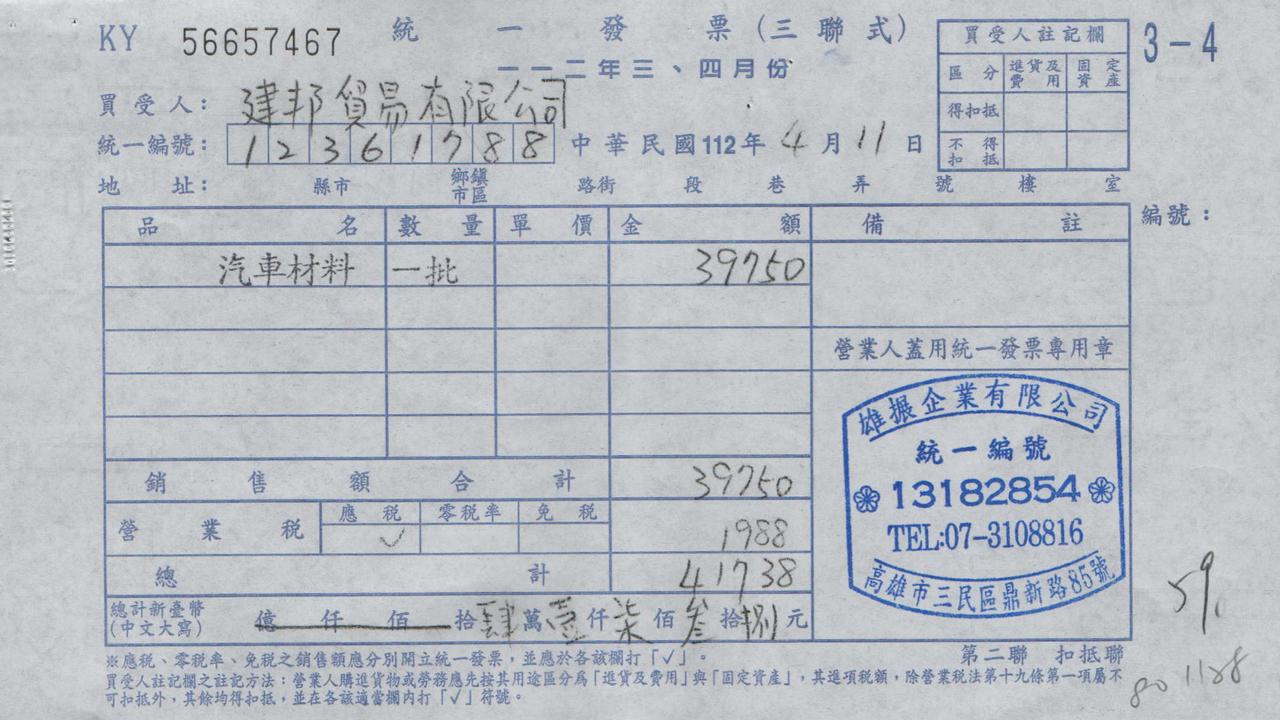 KY 56657467 統一發票(三聯式) 3-4
一一二年三、四月份
買受人: 建邦貿易有限公司
統一編號: 12361788 中華民國112年4月11日
地址: 縣市 鄉鎮市區 路街 段 巷 弄 號 樓 室
買受人註記欄
區分 進貨及費用 固定資產
得扣抵
不得扣抵
編號:
品名 數量 單價 金額 備註
汽車材料 一批 39750
營業人蓋用統一發票專用章
銷售額合計 39750
營業稅 應稅 零稅率 免稅
✓ 1988
總計 41738
總計新臺幣
(中文大寫) 億仟佰拾肆萬壹仟柒佰叁拾捌元
雄振企業有限公司
統一編號
13182854
TEL:07-3108816
高雄市三民區鼎新路85號
※應稅、零稅率、免稅之銷售額應分別開立統一發票,並應於各該欄打「✓」。
第二聯 扣抵聯
買受人註記欄之註記方法:營業人購進貨物或勞務應先按其用途區分為「進貨及費用」與「固定資產」,其進項稅額,除營業稅法第十九條第一項屬不
可扣抵外,其餘均得扣抵,並在各該適當欄內打「✓」符號。
59.
80 1188